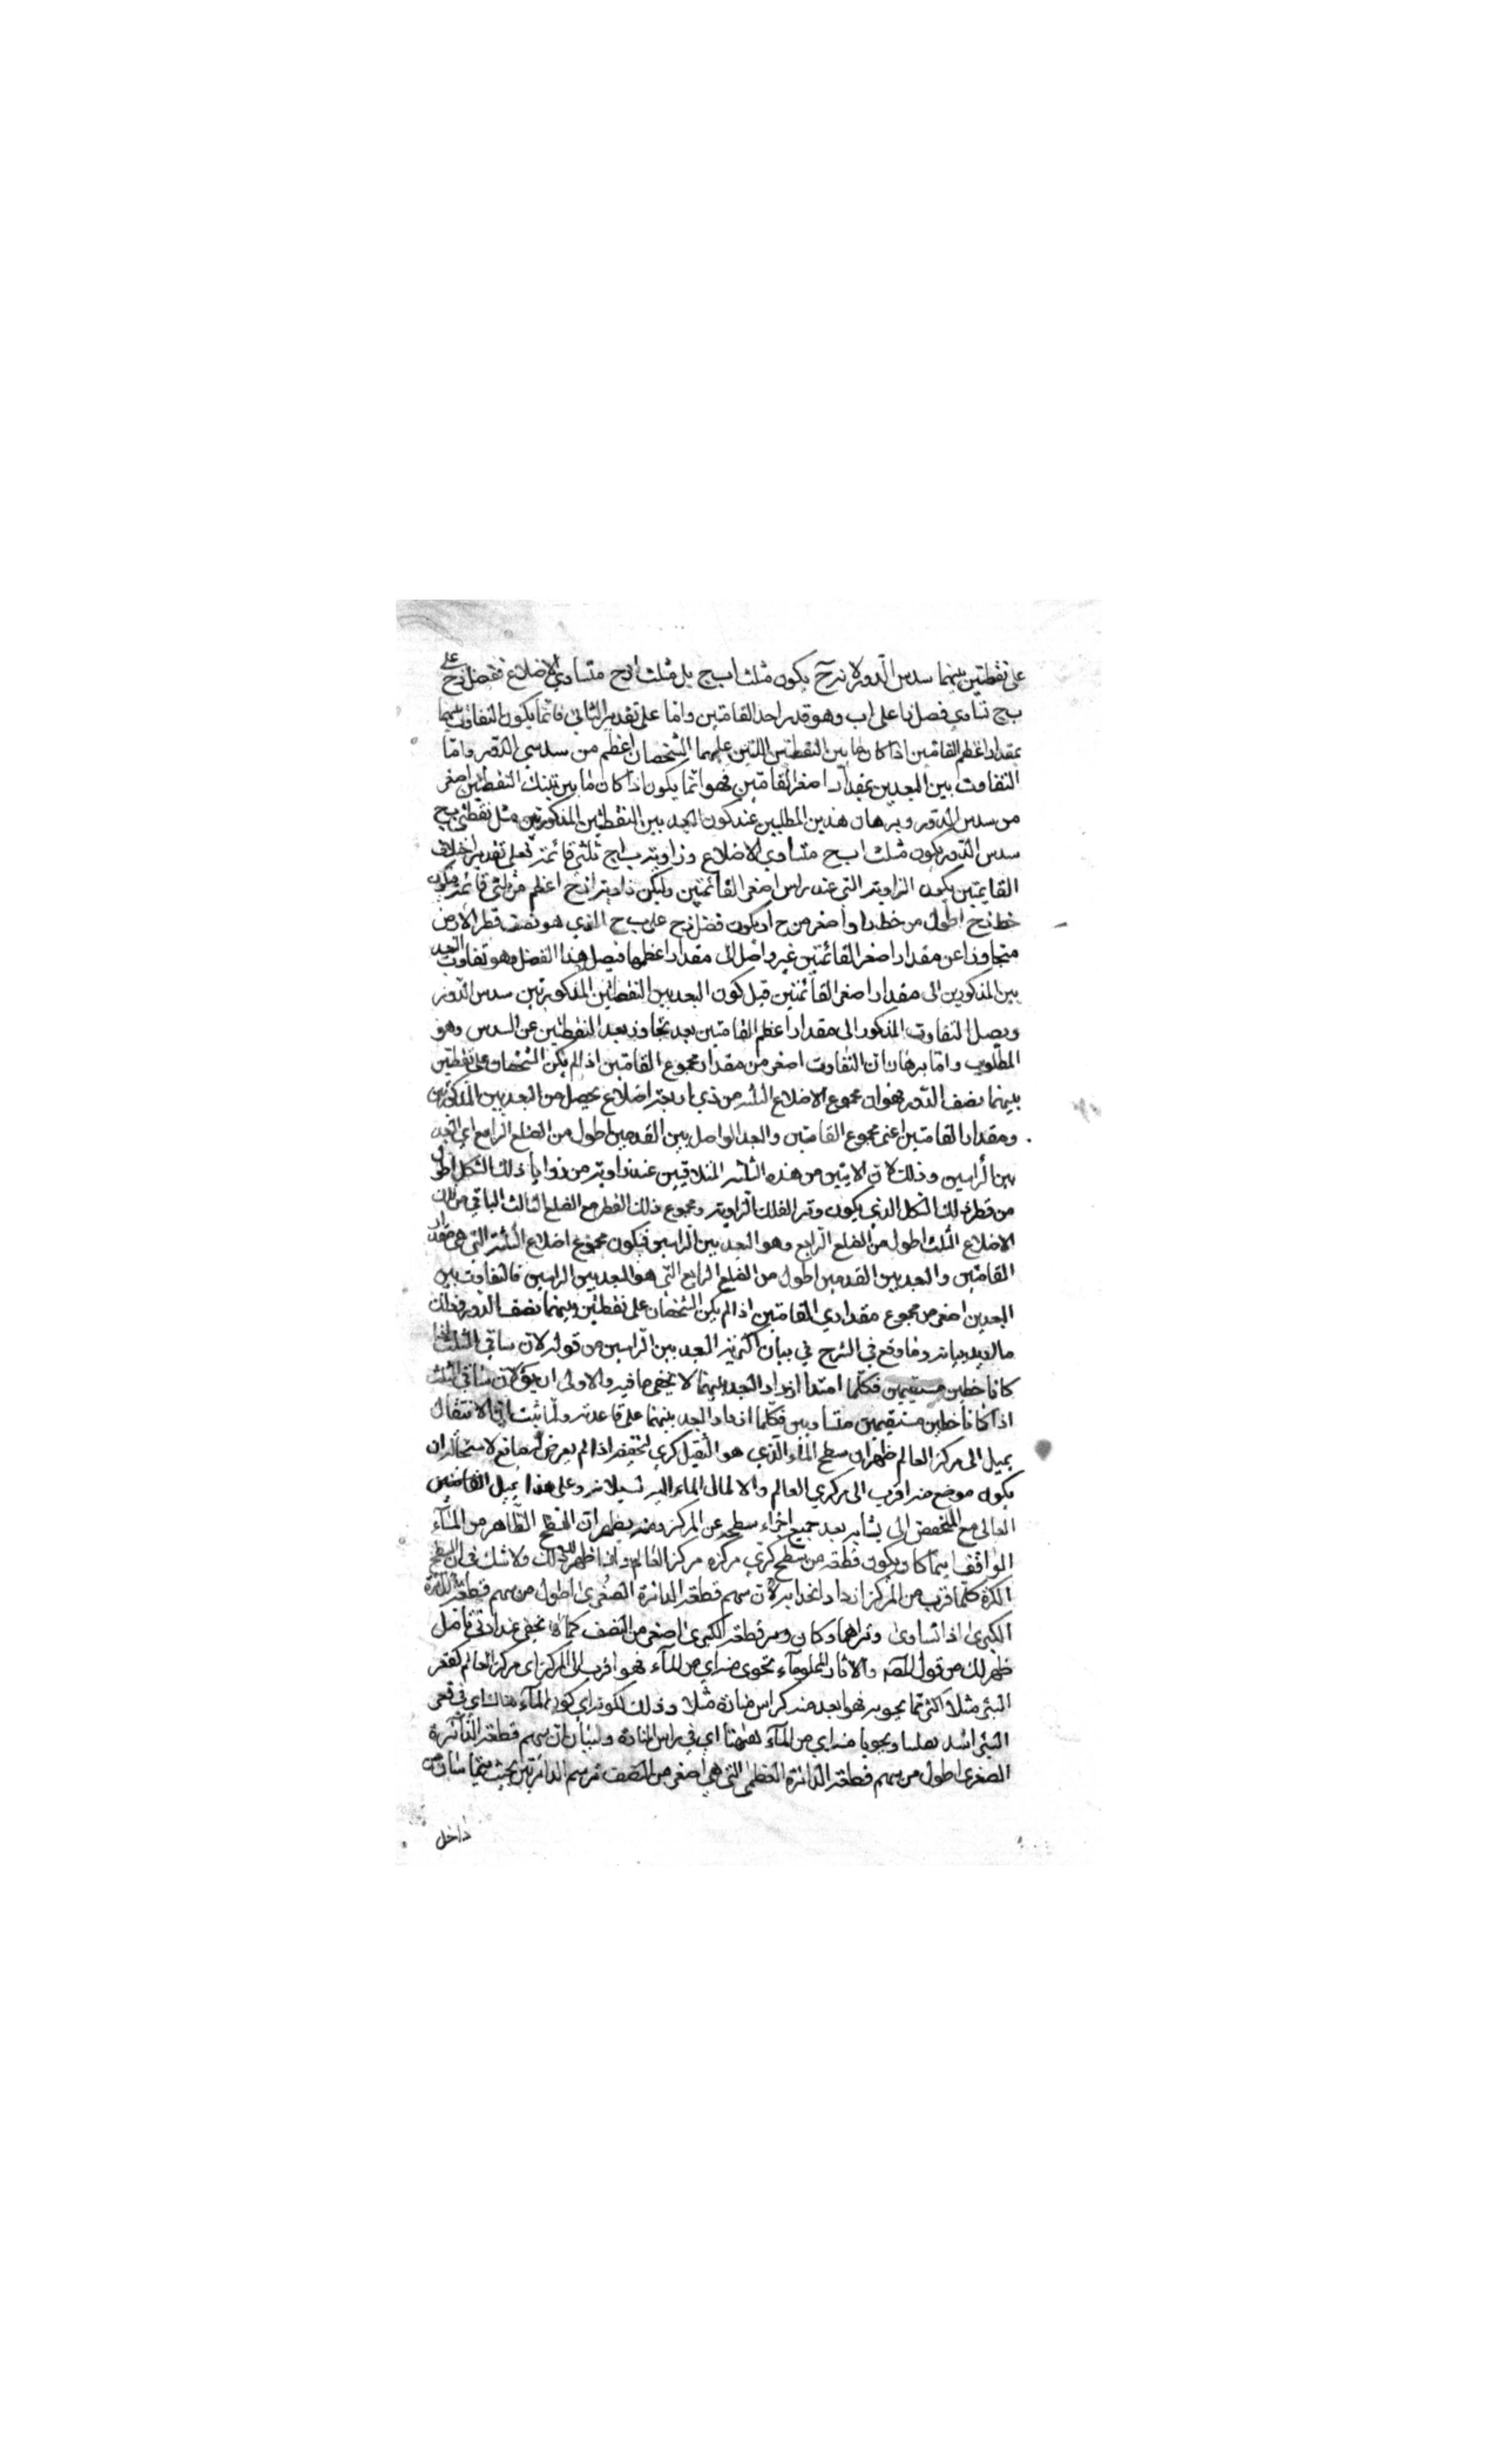 على نقطتين بينهما سدس الدور لانه ح يكون مثلث اب ج بل مثلث ا د ح متساوي الاضلاع ففضل د ح على
ب ج تساوي فضل د ا على اب وهو قدر احد القامتين واما على تقدير الثاني فانما يكون التفاوت بينهما
بمقدار اعظم القامتين اذا كان ما بين النقطتين اللتين عليهما الشخصان اعظم من سدس الدور واما
التفاوت بين البعدين بمقدار اصغر القامتين فهو انما يكون اذا كان ما بين تينك النقطتين اصغر
من سدس الدور وبرهان هذين المطلبين عند كون البعد بين النقطتين المذكورتين مثل نقطتي ب ج
سدس الدور يكون مثلث اب ج متساوي الاضلاع وزاوية ب ا ج ثلثي قائمة فعلى تقدير اختلاف
القامتين يكون الزاوية التي عند راس اصغر القامتين وليكن زاوية ا د ح اعظم من ثلثي قائمة فيكون
خط د ح اطول من خط د ا واصغر من ح ا ويكون فضل د ح على ب ج الذي هو نصف قطر الارض
متجاوزا عن مقدار اصغر القامتين غير واصل الى مقدار اعظمها فيصل هذا الفضل وهو تفاوت البعد
بين المذكورين الى مقدار اصغر القامتين قبل كون البعد بين النقطتين المذكورتين سدس الدور
ويصل التفاوت المذكور الى مقدار اعظم القامتين بعد تجاوز بعد النقطتين عن السدس وهو
المطلوب واما برهان ان التفاوت اصغر من مقدار مجموع القامتين اذا لم يكن الشخصان على نقطتين
بينهما نصف الدور فهو ان مجموع الاضلاع الثلثة من ذي اربعة اضلاع يحصل من البعدين المذكورين
ومقدار القامتين اعني مجموع القامتين والبعد الواصل بين القدمين اطول من الضلع الرابع اي البعد
بين الراسين وذلك لان الاثنين من هذه الثلثة المتلاقيين عند زاوية من زوايا ذلك الشكل اطول
من قطر ذلك الشكل الذي يكون وتر الفلك الزاوية ومجموع ذلك القطر مع الضلع الثالث الباقي من تلك
الاضلاع الثلث اطول من الضلع الرابع وهو البعد بين الراسين فيكون مجموع اضلاع الثلثة التي هي مقدار
القامتين والبعد بين القدمين اطول من الضلع الرابع التي هو البعد بين الراسين فالتفاوت بين
البعدين اصغر من مجموع مقداري القامتين اذا لم يكن الشخصان على نقطتين وبينهما نصف الدور وذلك
ما اريد بيانه وما وقع في الشرح في بيان اكثرية البعد بين الراسين من قوله لان ساقي المثلث لما
كانا خطين مستقيمين فكلما امتدا ازداد البعد بينهما لا يخفى ما فيه والاولى ان يق لان ساقي المثلث
اذا كانا خطين مستقيمين متساويين فكلما ازداد البعد بينهما على قاعدته ولما ثبت ان الاثقال
يميل الى مركز العالم ظهر ان سطح الماء الذي هو الثقيل كري الخفة اذا لم يعرض له مانع لاستحالة ان
يكون موضع منه اقرب الى مركزي العالم والا لمال الماء اليه لسيلانه وعلى هذا يميل
العالي مع المنخفض الى يشابه بعد جميع اجزاء سطحه عن المركز ومنه يظهر ان السطح الظاهر من الماء
الواقف اينما كان ويكون قطعة من سطح كري مركزه مركز العالم واذا ظهر لك ذلك ولا شك في ان السطح
الكرة كلما قرب من المركز ازداد انحدابه لان سهم قطعة الدائرة الصغرى اطول من سهم قطعة الدائرة
الكبرى اذا تساوى وتراهما وكان وتر قطعة الكبرى اصغر من النصف كما لا يخفى عند ادنى تامل
ظهر لك من قول المصه والاناء المملو ماء يحوى منه اي من الماء فهو اقرب الى المركز اي مركز العالم كقعر
البئر مثلا اكثر مما يحويه فهو ابعد منه كراس منارة مثلا وذلك لكونه اي كون الماء هناك اي في قعر
البئر اشد ويحويا منه اي من الماء ههنا اي في راس المنارة ولبيان ان سهم قطعة الدائرة
الصغرى اطول من سهم قطعة الدائرة العظمى التي هي اصغر من النصف نرسم الدائرتين بحيث
داخل